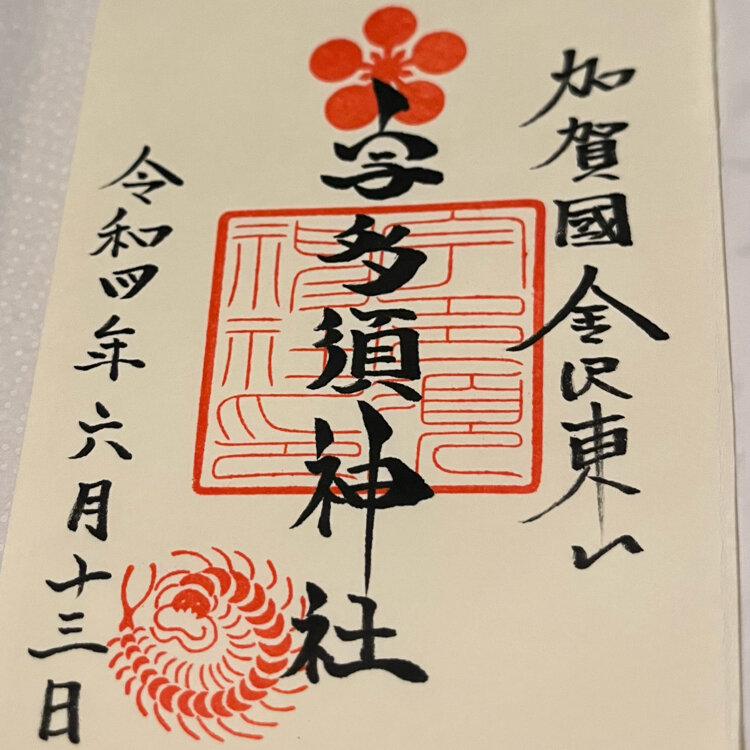 加賀國金沢東山
宇多須神社
宇多須神社之印
令和四年六月十三日